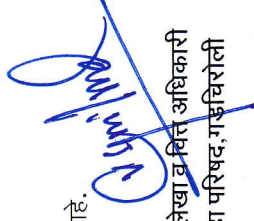 आहे.
लेखा व वित्त अधिकारी
परिषद,गडचिरोली